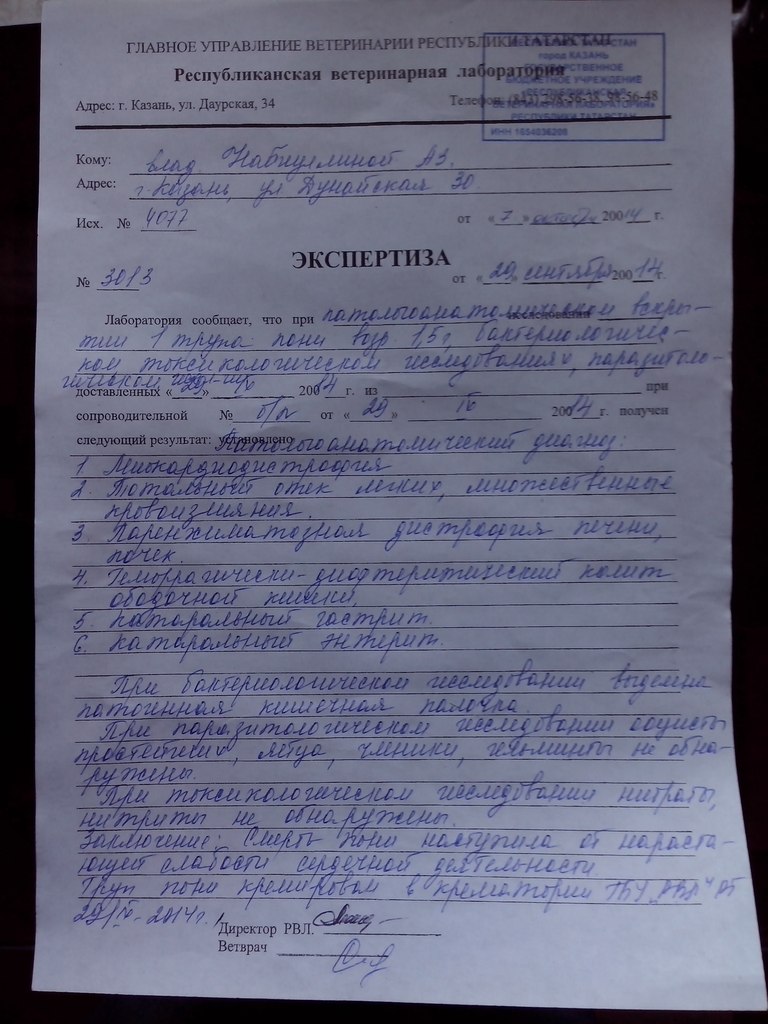 ГЛАВНОЕ УПРАВЛЕНИЕ ВЕТЕРИНАРИИ РЕСПУБЛИКИ ТАТАРСТАН
Республиканская ветеринарная лаборатория
Адрес: г. Казань, ул. Даурская, 34 Телефон: (843) 298-56-38, 98-56-48
город КАЗАНЬ
ГОСУДАРСТВЕННОЕ
БЮДЖЕТНОЕ УЧРЕЖДЕНИЕ
«РЕСПУБЛИКАНСКАЯ
ВЕТЕРИНАРНАЯ ЛАБОРАТОРИЯ»
РЕСПУБЛИКИ ТАТАРСТАН
ИНН 1654036208
Кому: влад. Набиуллиной А.З.
Адрес: г. Казань, ул Дунайская 30
Исх. № 4077 от «7» октября 20014 г.
ЭКСПЕРТИЗА
№ 3013 от «29» сентября 20014 г.
Лаборатория сообщает, что при патологоанатомическом вскры-
тии 1 трупа пони возр. 1,5 г, бактериологичес-
ком токсикологическом исследованиях, паразитоло-
гическом
доставленных «29» 20014 г. из при
сопроводительной № б/н от «29» IX 20014 г. получен
следующий результат: установлено Патологоанатомический диагноз:
1. Миокардиодистрофия
2. Тотальный отек легких, множественные
кровоизлияния.
3. Паренхиматозная дистрофия печени,
почек.
4. Геморрагически-дифтеритический колит
ободочной кишки.
5. Катаральный гастрит.
6. Катаральный энтерит.
При бактериологическом исследовании выделена
патогенная кишечная палочка.
При паразитологическом исследовании ооцисты
простейших, яйца, членики, гельминты не обна-
ружены.
При токсикологическом исследовании нитраты,
нитриты не обнаружены.
Заключение: Смерть пони наступила от нараста-
ющей слабости сердечной деятельности
Труп пони кремирован в крематории ГБУ "РВЛ" РТ
29/IX-2014г.
Директор РВЛ.
Ветврач